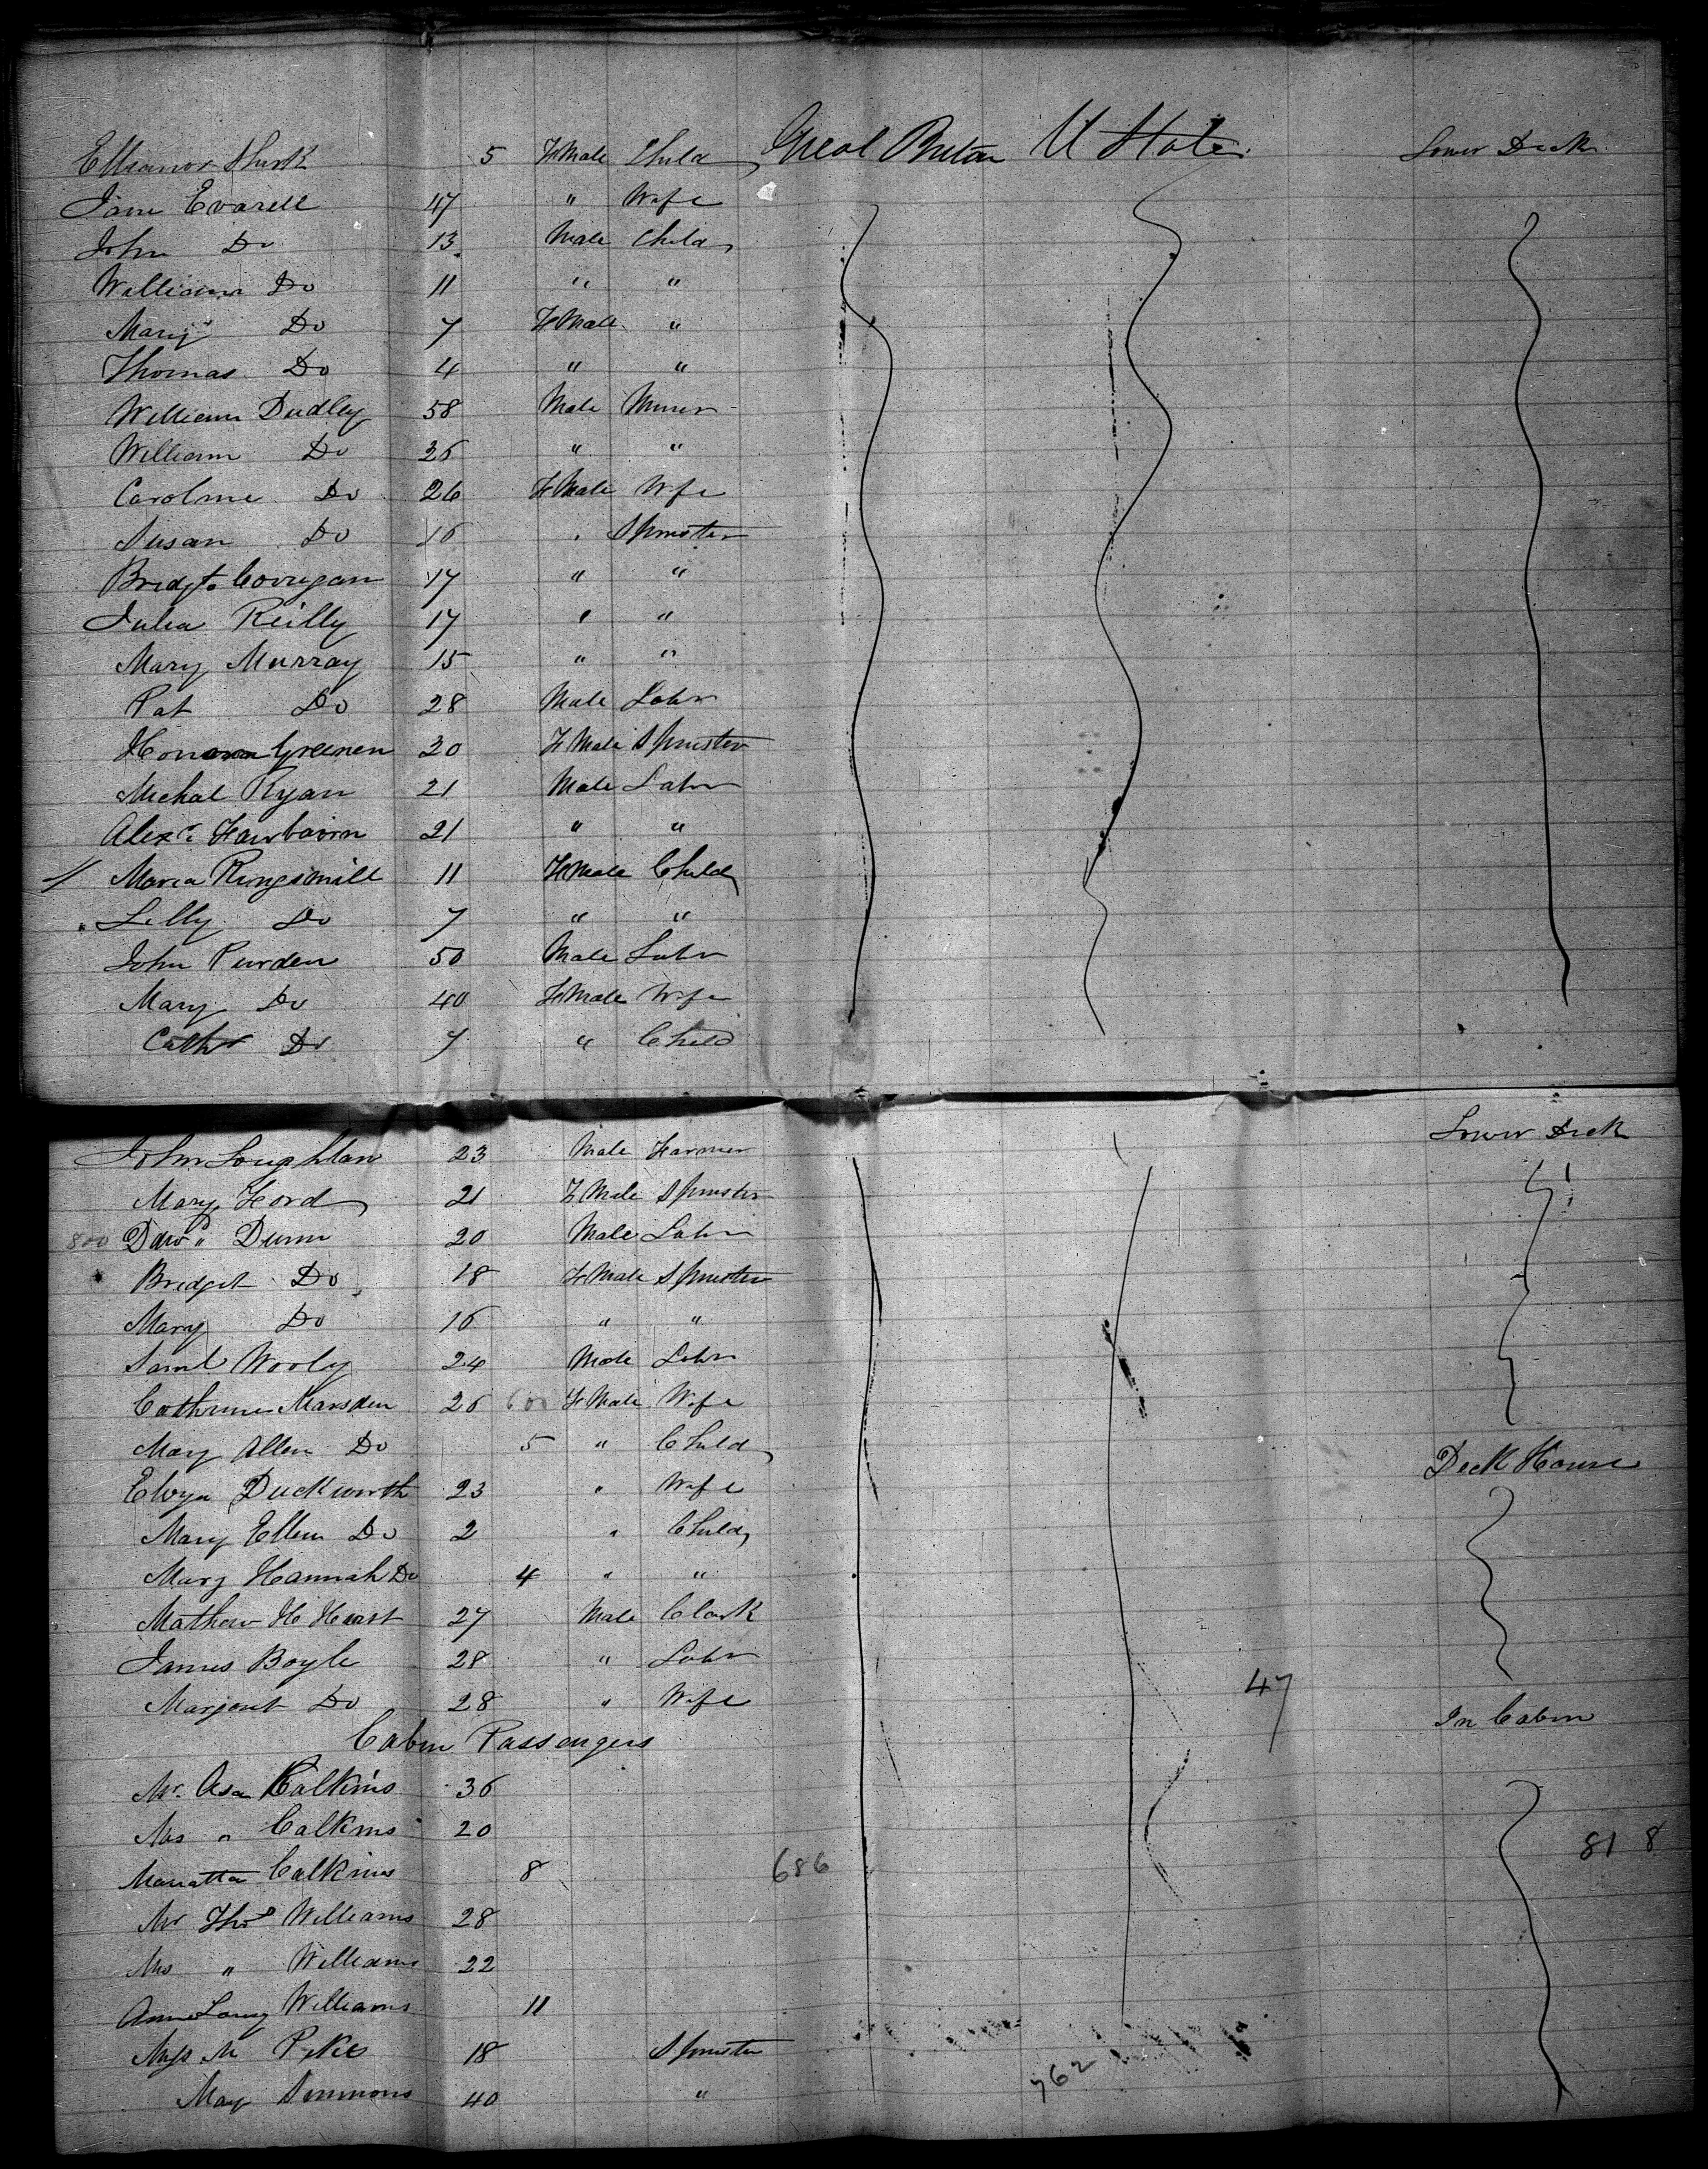 Elleanor Shirk 5 FMale Child Great Britan U States Lower Deck
Jane Evarell 47 " Wife
John Do 13 Male Child
William Do 11 " "
Mary Do 7 FMale "
Thomas Do 4 " "
William Dudley 58 Male Miner
William Do 26 " "
Caroline Do 26 FMale Wife
Susan Do 16 " Spinster
Bridgt Corrigan 17 " "
Julia Reilly 17 " "
Mary Murray 15 " "
Pat Do 28 Male Labr
Greenen 20 FMale Spinster
Michal Ryan 21 Male Labr
Alexr Fairbairn 21 " "
Maria Ringsmill 11 FMale Child
Lilly Do 7 " "
John Purden 50 Male Labr
Mary Do 40 FMale Wife
Cathr Do 7 " Child
John Loughlan 23 Male Farmer Lower Deck
Mary Ford 21 FMale Spinster
800 Davd Dunn 20 Male Labr
Bridget Do 18 FMale Spinster
Mary Do 16 " "
Saml Wooly 24 Male Labr
Cathrine Marsden 26 600 FMale Wife
Mary Allen Do 5 " Child
Elvya Duckworth 23 " Wife Deck House
Mary Ellen Do 2 " Child
Mary Hannah Do 4 " "
Mathew H Hurst 27 Male Clark
James Boyle 28 " Labr
Margout Do 28 " Wife 47
Cabin Passengers In Cabin
Mr. Asa Calkins 36
Mrs " Calkins 20 81 8
Mariatta Calkins 8 686
Mr Thos Williams 28
Mrs " Williams 22
Anne Williams 11
Miss M Pikes 18 Spinster
762
May Simmons 40 "